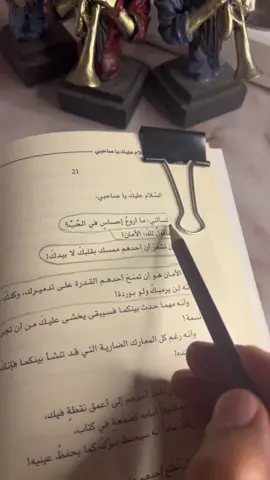 السّلام عليكَ يا صاحبي
21
السّلام عليكَ يا صاحبي،
سألتني: ما أروعُ إحساسٍ في الحُبِّ؟
لكَ: الأمان!
تشعرَ أن أحدهم ممسك بقلبكَ لا بيدكَ!
الأمان هو أن تمنحَ أحدهم القدرة على تدميركَ، وكلكَ
لن يرميكَ ولو بوردة!
وأنه مهما حدث بينكما فسيبقى يخشى عليكَ من أن
وأنه رغم كل المعارك الضارية التي قد تنشأ بينكما فإنك
أحدهم إلى أعمق نقطةٍ فيك،
أمامه كصفحة في كتاب،
أنه سيحفظ سرَّكَ كما يحفظُ عينيه!